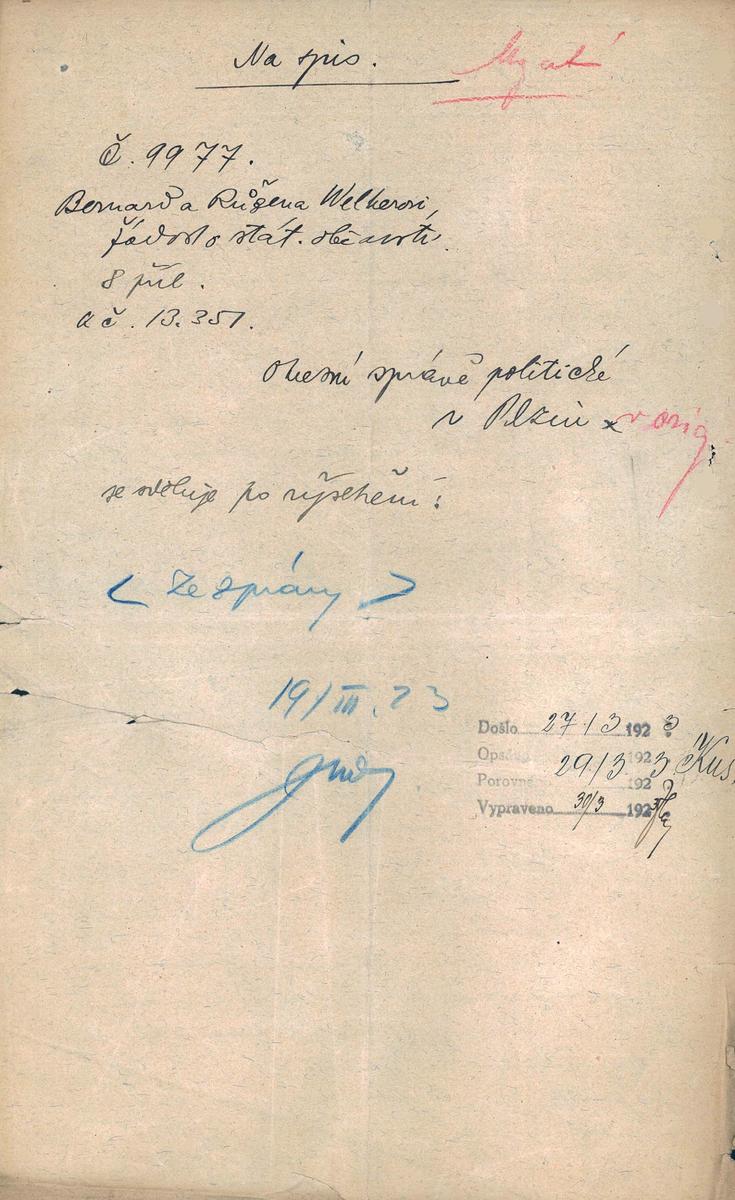 Na spis.
Č. 9977.
Bernard a Růžena Welkerovi,
žádost o stát. občanství.
8 příl.
a č. 13.351.
Okresní správě politické
v Plzni x v orig.
se sděluje po výseknění:
< Ze zprávy >
19/III.23
Došlo 27/3 1923
Opsáno 29/3 1923
Porovn 192
Vypraveno 30/3 1923